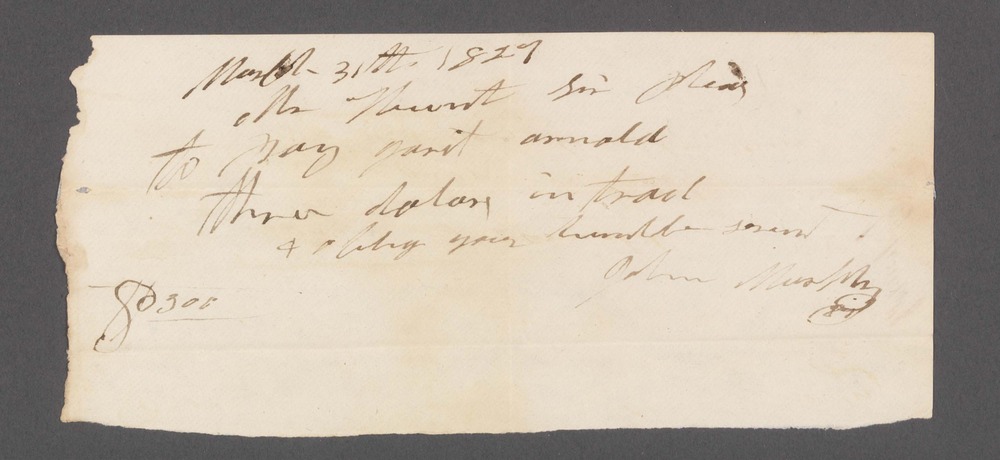 March 31th. 1829
Mr Hunt Sir Pleas
to pay garit arnold
three dolars in trad
& oblig your humble servnt
John Murphy
$300